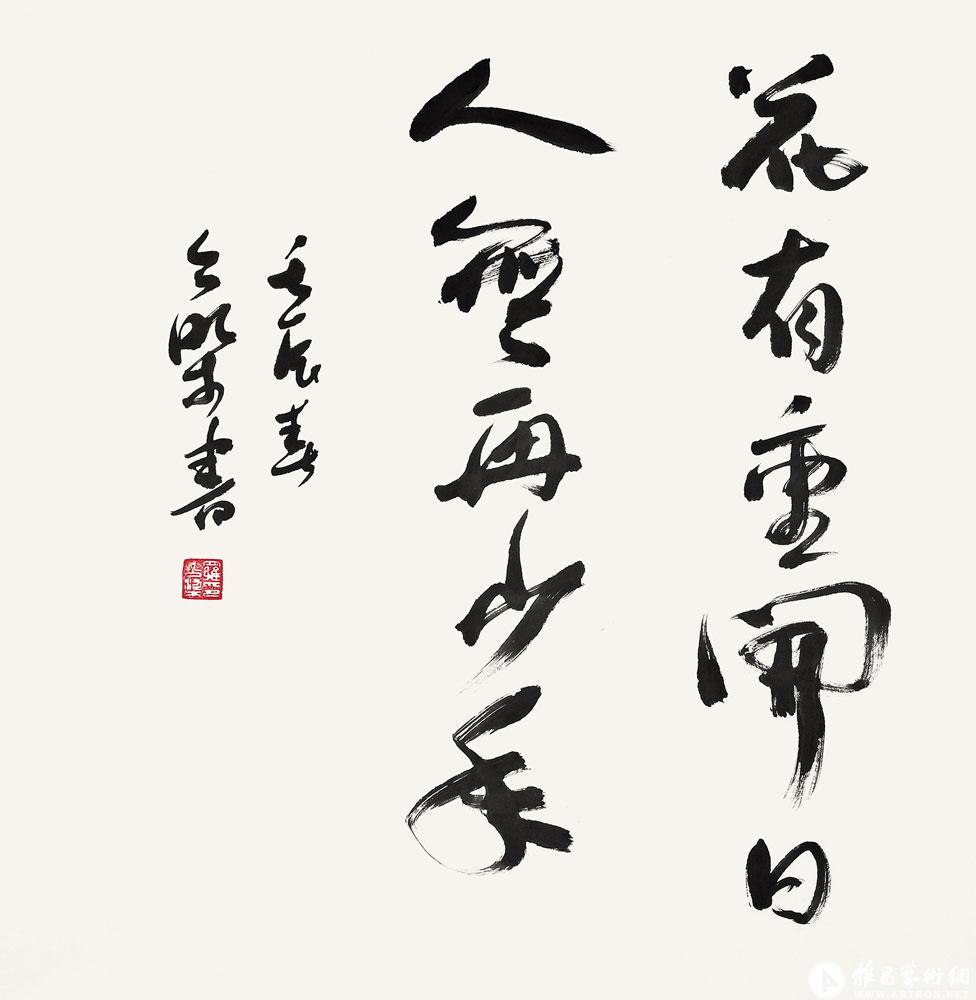 花有重開日
人無再少年
壬辰春
書
雅昌藝術網
WWW.ARTRON.NET